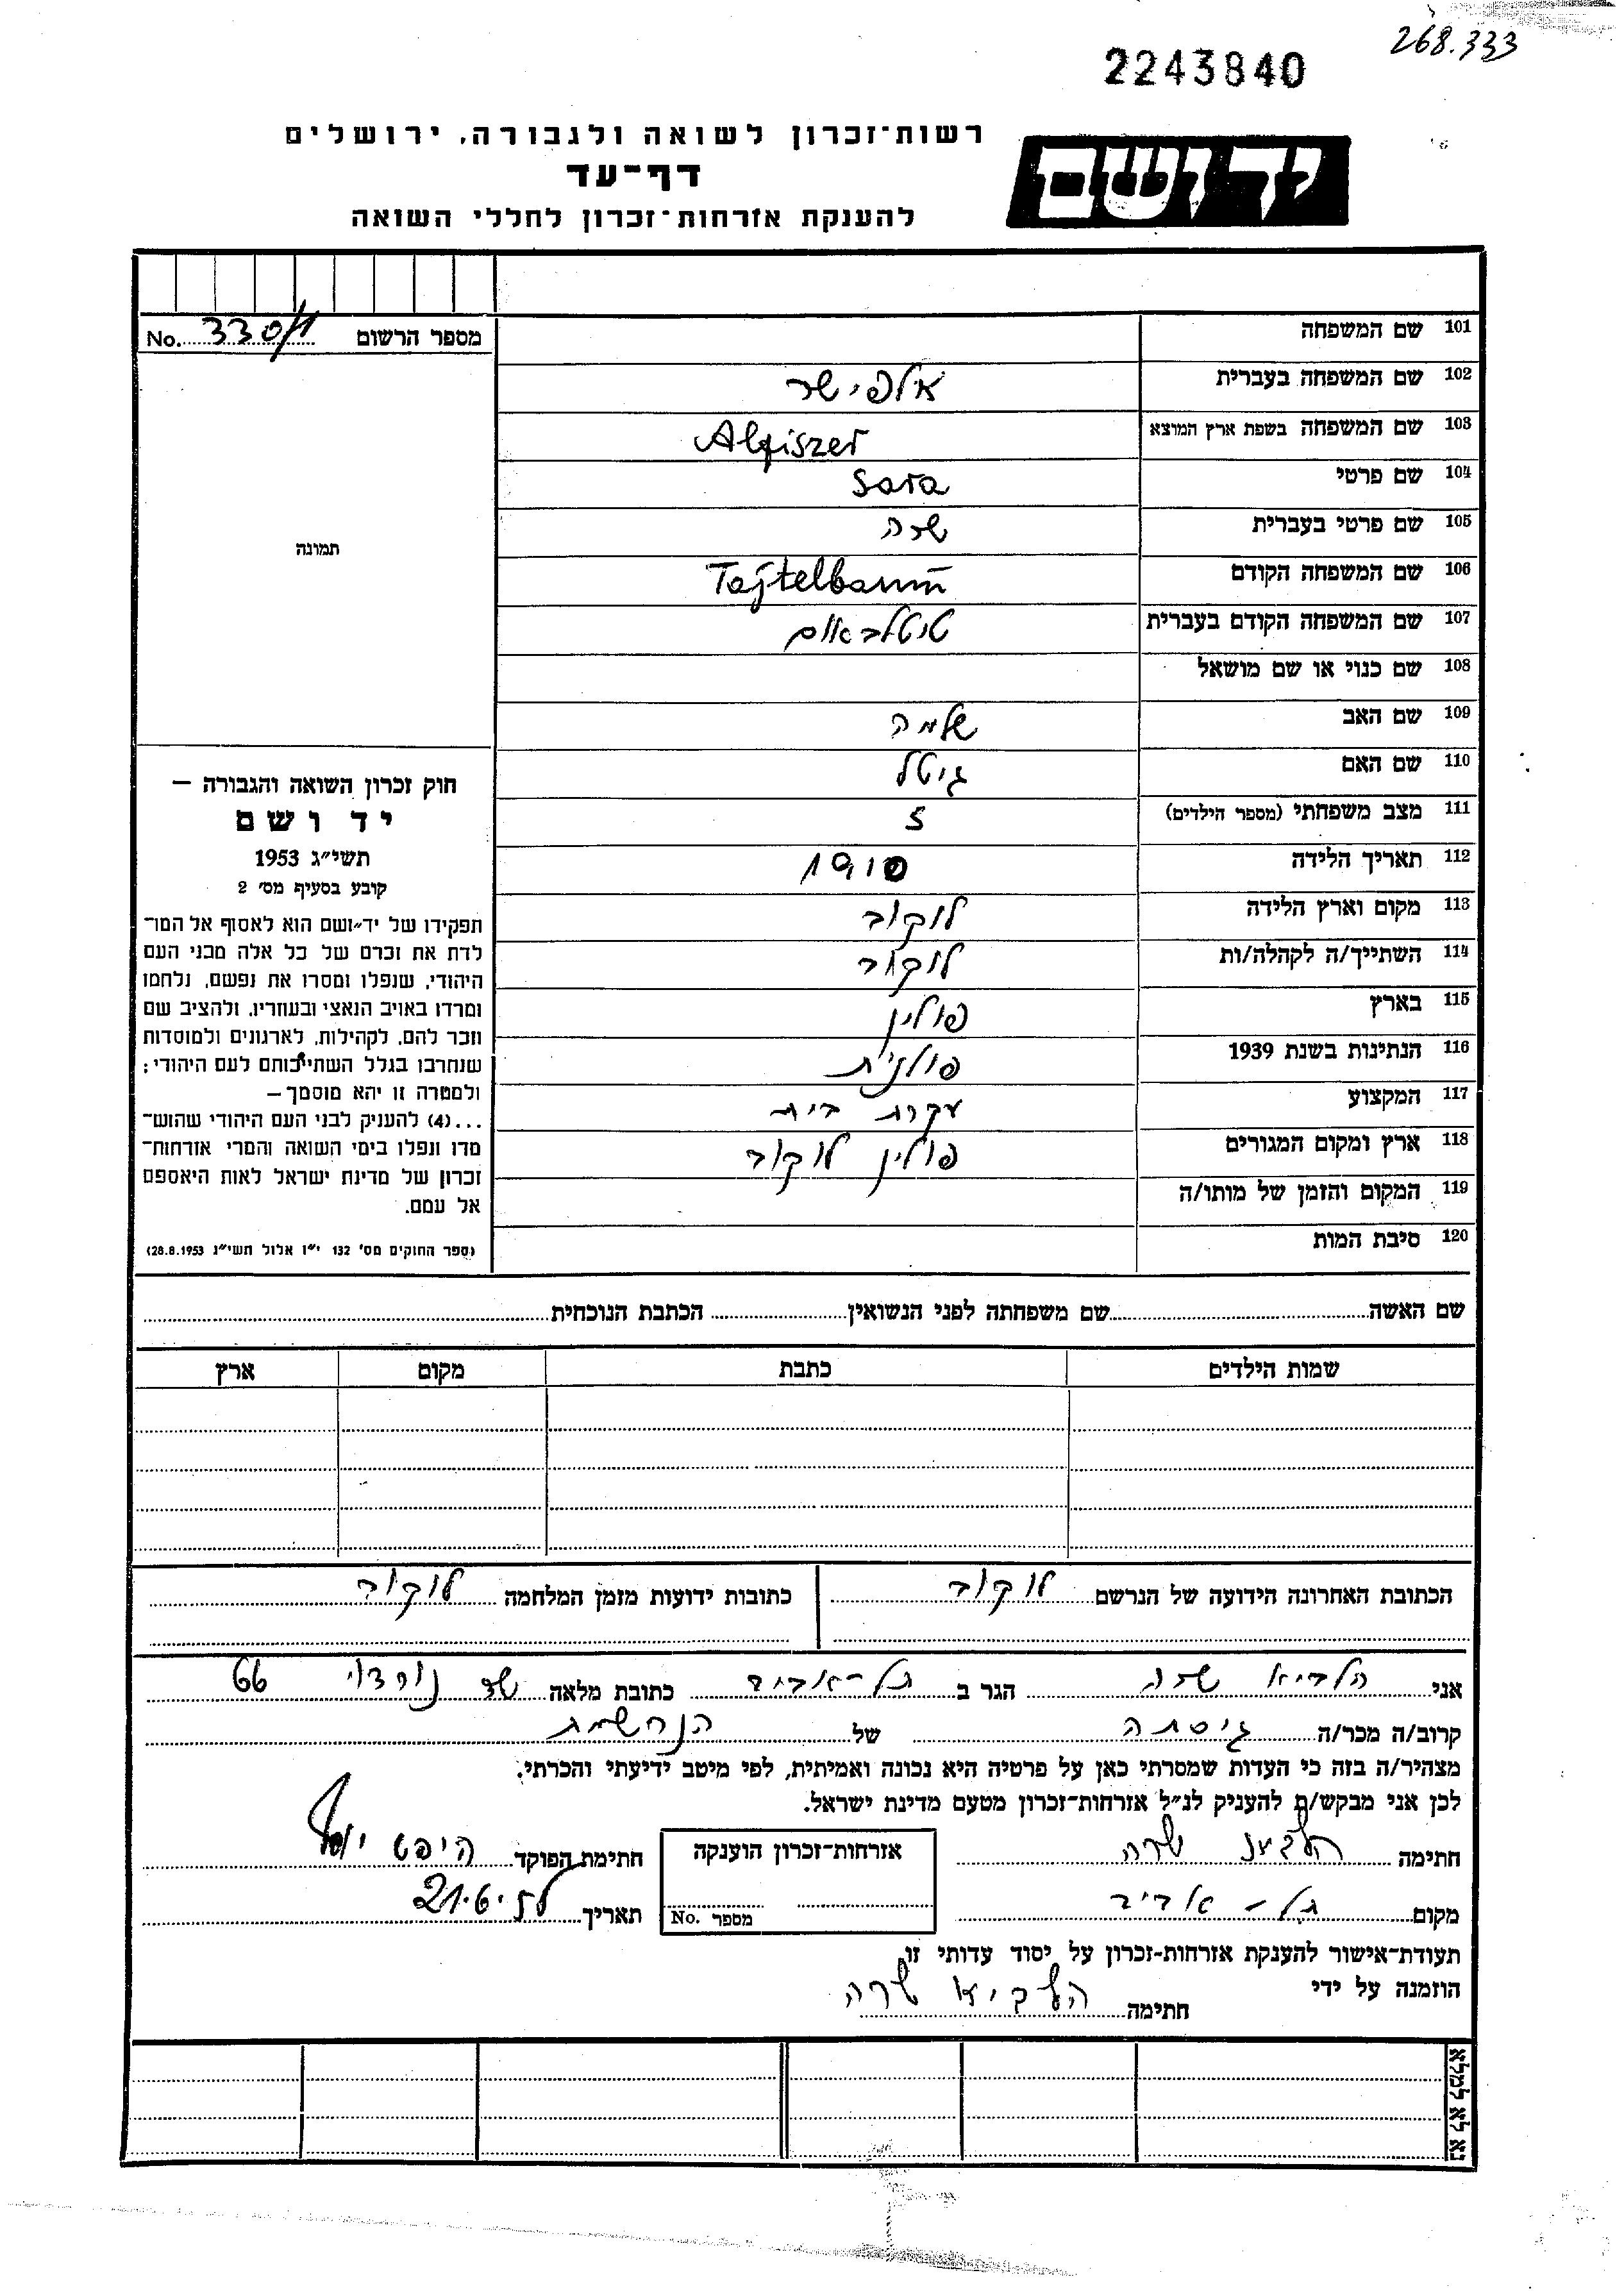 268.333
2243840
ידושם
רשות־זכרון לשואה ולגבורה, ירושלים
דף־עד
להענקת אזרחות־זכרון לחללי השואה
מספר הרשום No. 330/1
101 שם המשפחה
102 שם המשפחה בעברית אלפישר
103 שם המשפחה בשפת ארץ המוצא Alfiszer
104 שם פרטי Sara
105 שם פרטי בעברית שרה
106 שם המשפחה הקודם Tajtelbaum
107 שם המשפחה הקודם בעברית טיטלבאום
108 שם כנוי או שם מושאל
109 שם האב שלמה
110 שם האם גיטל
111 מצב משפחתי (מספר הילדים) 5
112 תאריך הלידה 1910
113 מקום וארץ הלידה לוקוב
114 השתייך/ה לקהלה/ות לוקוב
115 בארץ פולין
116 הנתינות בשנת 1939 פולנית
117 המקצוע עקרת בית
118 ארץ ומקום המגורים פולין לוקוב
119 המקום והזמן של מותו/ה
120 סיבת המות
תמונה
חוק זכרון השואה והגבורה —
יד ושם
תשי״ג 1953
קובע בסעיף מס׳ 2
תפקידו של יד־ושם הוא לאסוף אל המו־
לדת את זכרם של כל אלה מבני העם
היהודי, שנפלו ומסרו את נפשם, נלחמו
ומרדו באויב הנאצי ובעוזריו, ולהציב שם
וזכר להם, לקהילות, לארגונים ולמוסדות
שנחרבו בגלל השתייכותם לעם היהודי;
ולמטרה זו יהא מוסמך —
...(4) להעניק לבני העם היהודי שהוש־
מדו ונפלו בימי השואה והמרי אזרחות־
זכרון של מדינת ישראל לאות היאספם
אל עמם.
(ספר החוקים מס׳ 132 י״ז אלול תשי״ג 28.8.1953)
שם האשה שם משפחתה לפני הנשואין הכתבת הנוכחית
שמות הילדים כתבת מקום ארץ
הכתובת האחרונה הידועה של הנרשם לוקוב כתובות ידועות מזמן המלחמה לוקוב
אני שרה הגר ב תל־אביב כתובת מלאה שד נורדוי 66
קרוב/ה מכר/ה גיסתה של הנרשמת
מצהיר/ה בזה כי העדות שמסרתי כאן על פרטיה היא נכונה ואמיתית, לפי מיטב ידיעתי והכרתי.
לכן אני מבקש/ת להעניק לנ״ל אזרחות־זכרון מטעם מדינת ישראל.
חתימה שרה אזרחות־זכרון הוענקה חתימת הפוקד
מקום תל־אביב מספר No. תאריך 21.6.57
תעודת־אישור להענקת אזרחות־זכרון על יסוד עדותי זו,
הוזמנה על ידי
חתימה שרה
נא לא למלא